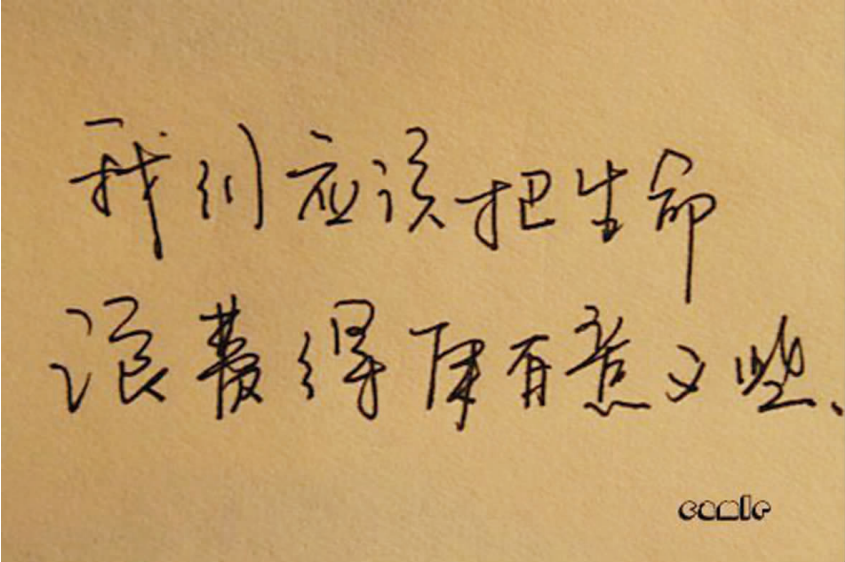 我们应该把生命
浪费得更有意义些、
camlr